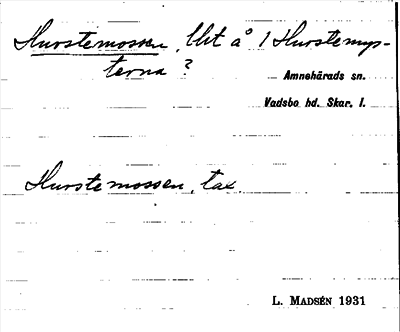 Hurstemossen, bbt å 1 Hurstemys-
terna ?
Amnehärads sn.
Vadsbo hd. Skar. l.
Hurstemossen, tax.
L. MADSÉN 1931